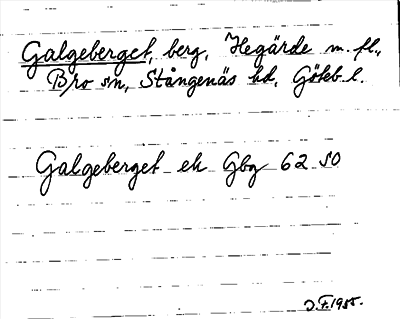 Galgeberget, berg, Hegärde m. fl.,
Bro sn, Stångenäs hd, Göteb. l.
Galgeberget ek Gbg 62 SO
J.F. 1955.